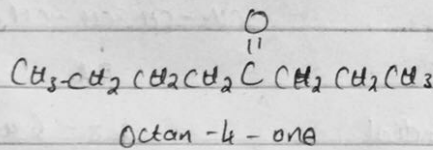 O
||
CH3-CH2 CH2CH2 C CH2 CH2CH3
Octan-4-one